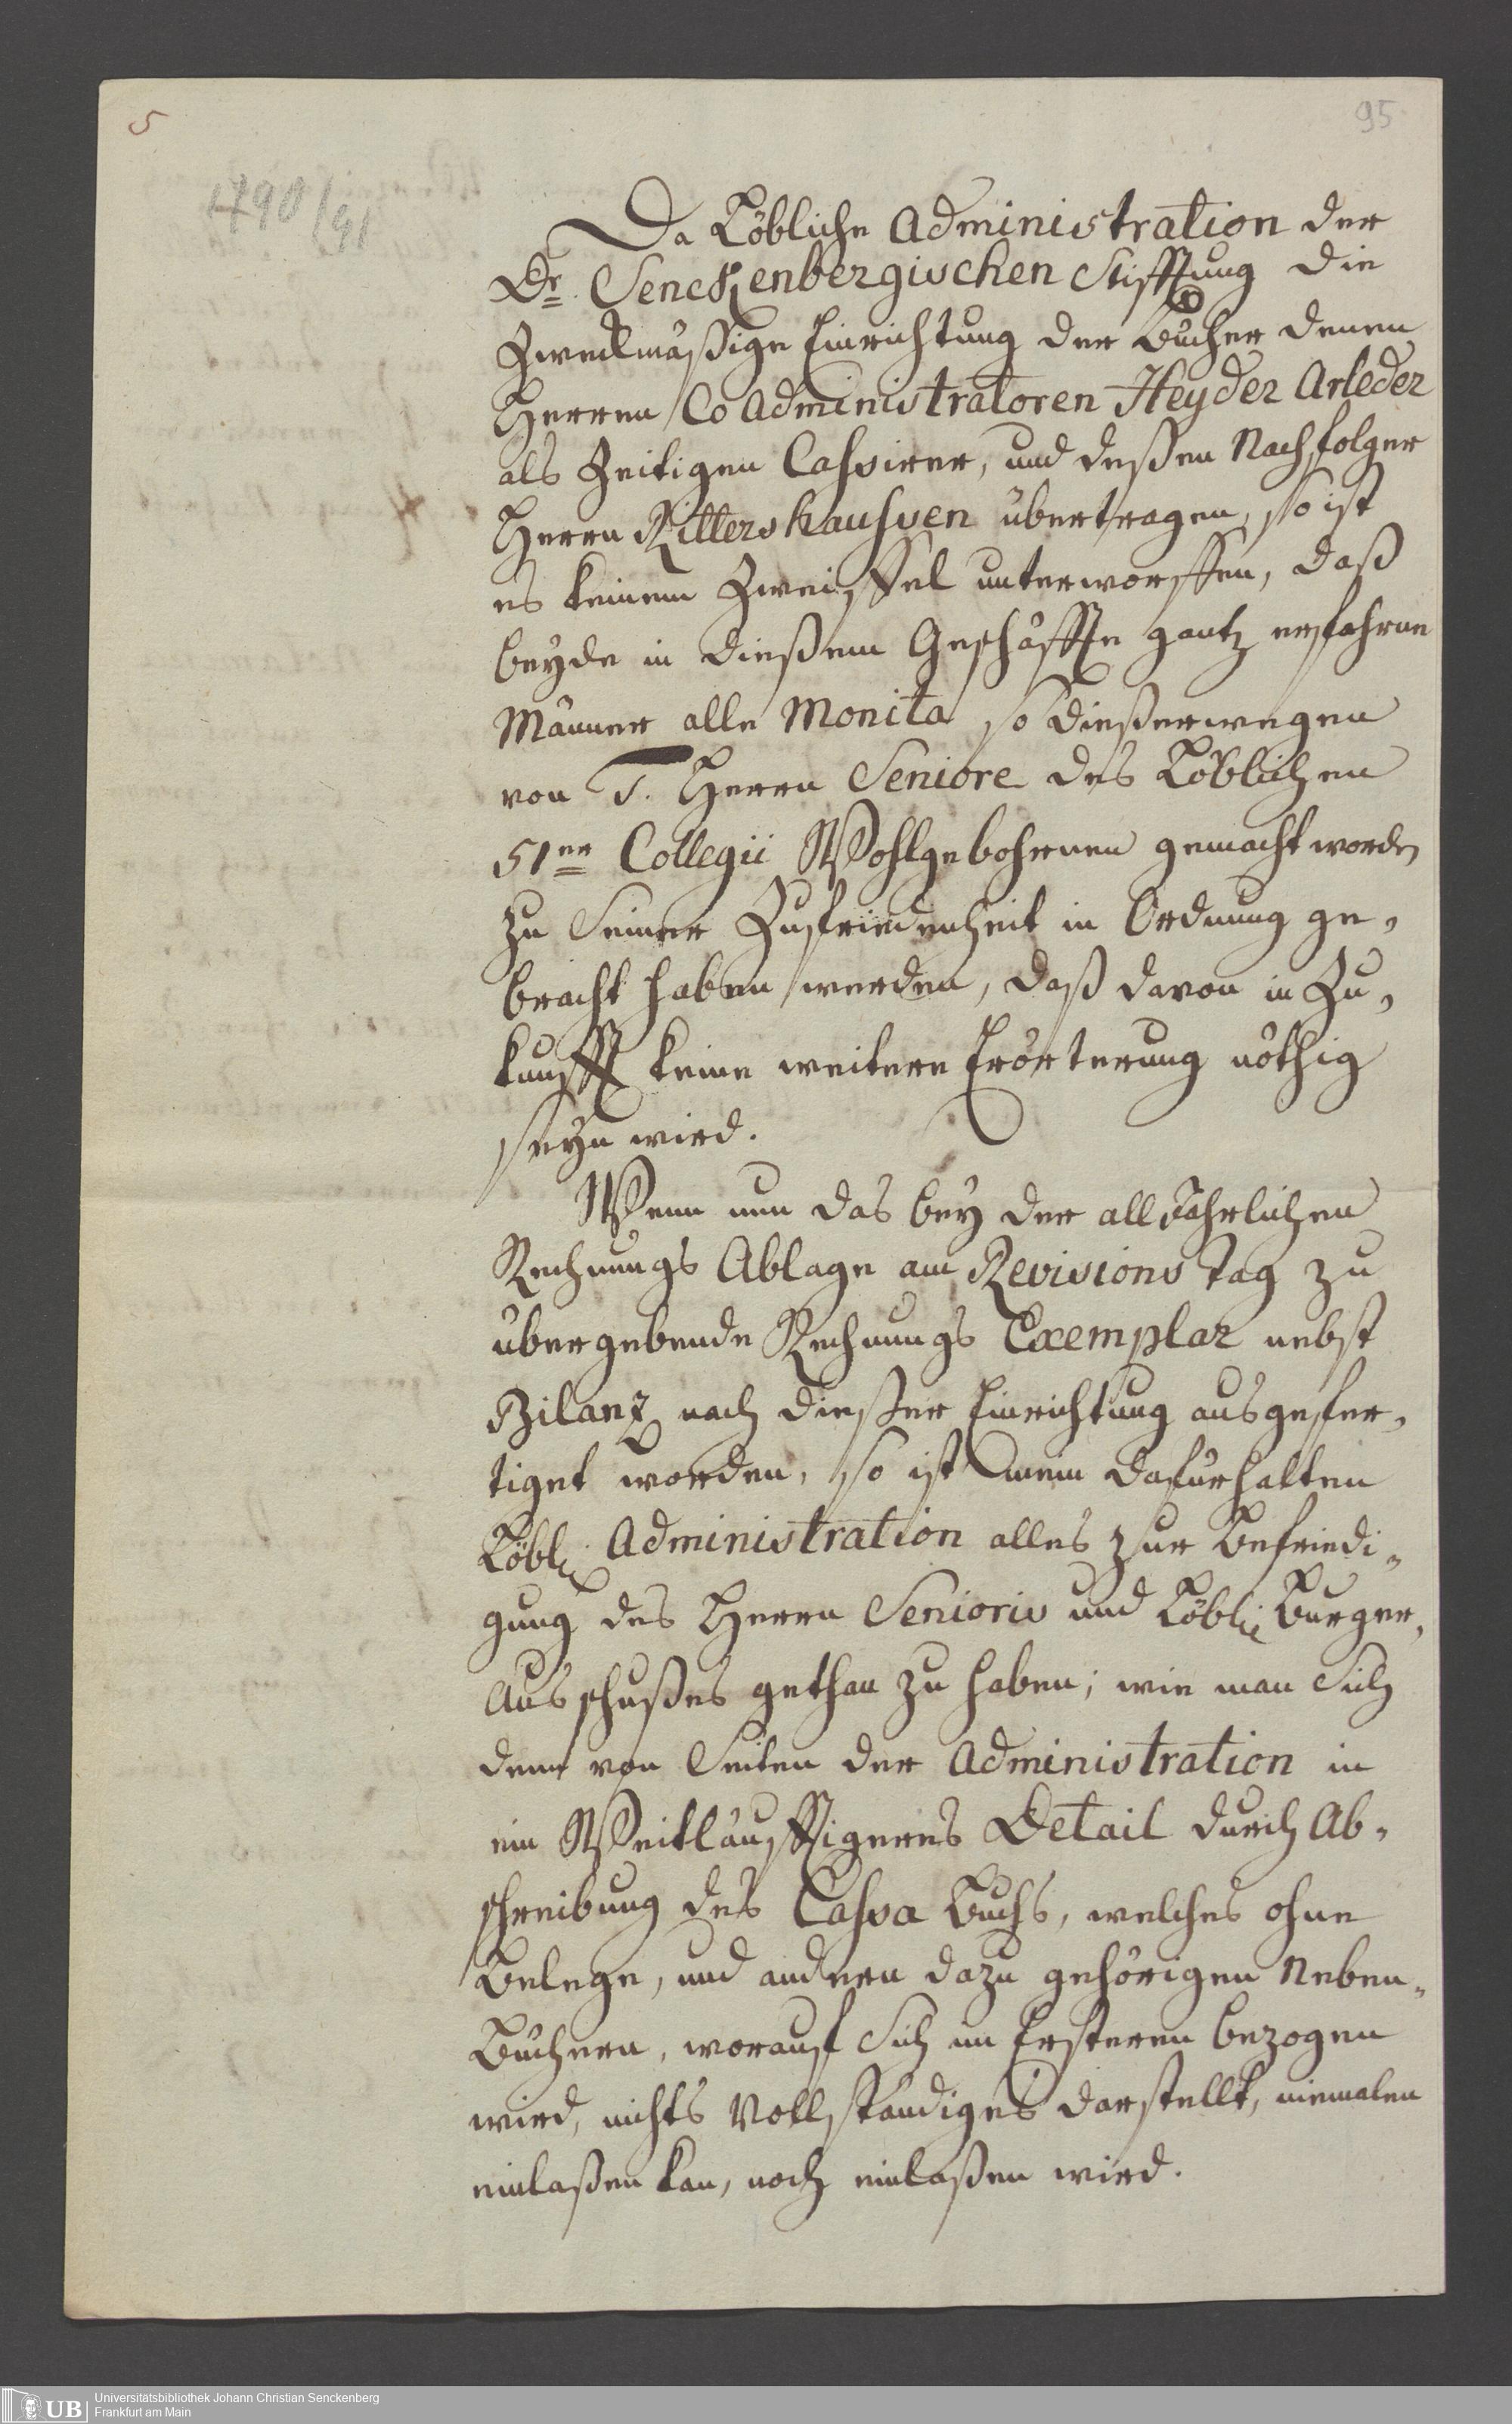 5
95
1790/91
Da Löbliche Administration der
Dr. Senckenbergischen Stifftung die
Zweckmäßige Einrichtung der Bücher denen
Herren Co Administratoren Heyder Arleder
als Zeitigen Cassirer, und deßen Nachfolger
Herrn Rittershaussen übertragen, so ist
es keinem Zweiffel unterworffen, daß
beyde in dießem Geschäffte gantz erfahrne
Männer alle Monita so dießerwegen
von T. Herrn Seniore des Löblichen
51er Collegii Wohlgebohrnen gemacht worden
zu Seiner Zufriedenheit in Ordnung ge-
bracht haben werden, daß davon in Zu-
kunfft keine weitere Erörterung nöthig
seyn wird.
Wenn nun das bey der all Jährlichen
Rechnungs Ablage am Revisions Tag zu
übergebende Rechnungs Exemplar nebst
Bilanz nach dießer Einrichtung ausgefer-
tiget worden, so ist mein dafürhalten
Löbl. Administration alles zur Befriedi-
gung des Herrn Senioris und Löbl. Burger-
Ausschußes gethan zu haben; wie man Sich
denn von Seiten der Administration in
ein Weitläuffigeres Detail durch Ab-
schreibung des Cassa Buchs, welches ohne
Belege, und andern dazu gehörigen Neben-
Büchern, worauf Sich im Ersteren bezogen
wird, nichts Vollständiges darstellt, niemalen
einlaßen kan, noch einlaßen wird.
UB
Universitätsbibliothek Johann Christian Senckenberg
Frankfurt am Main